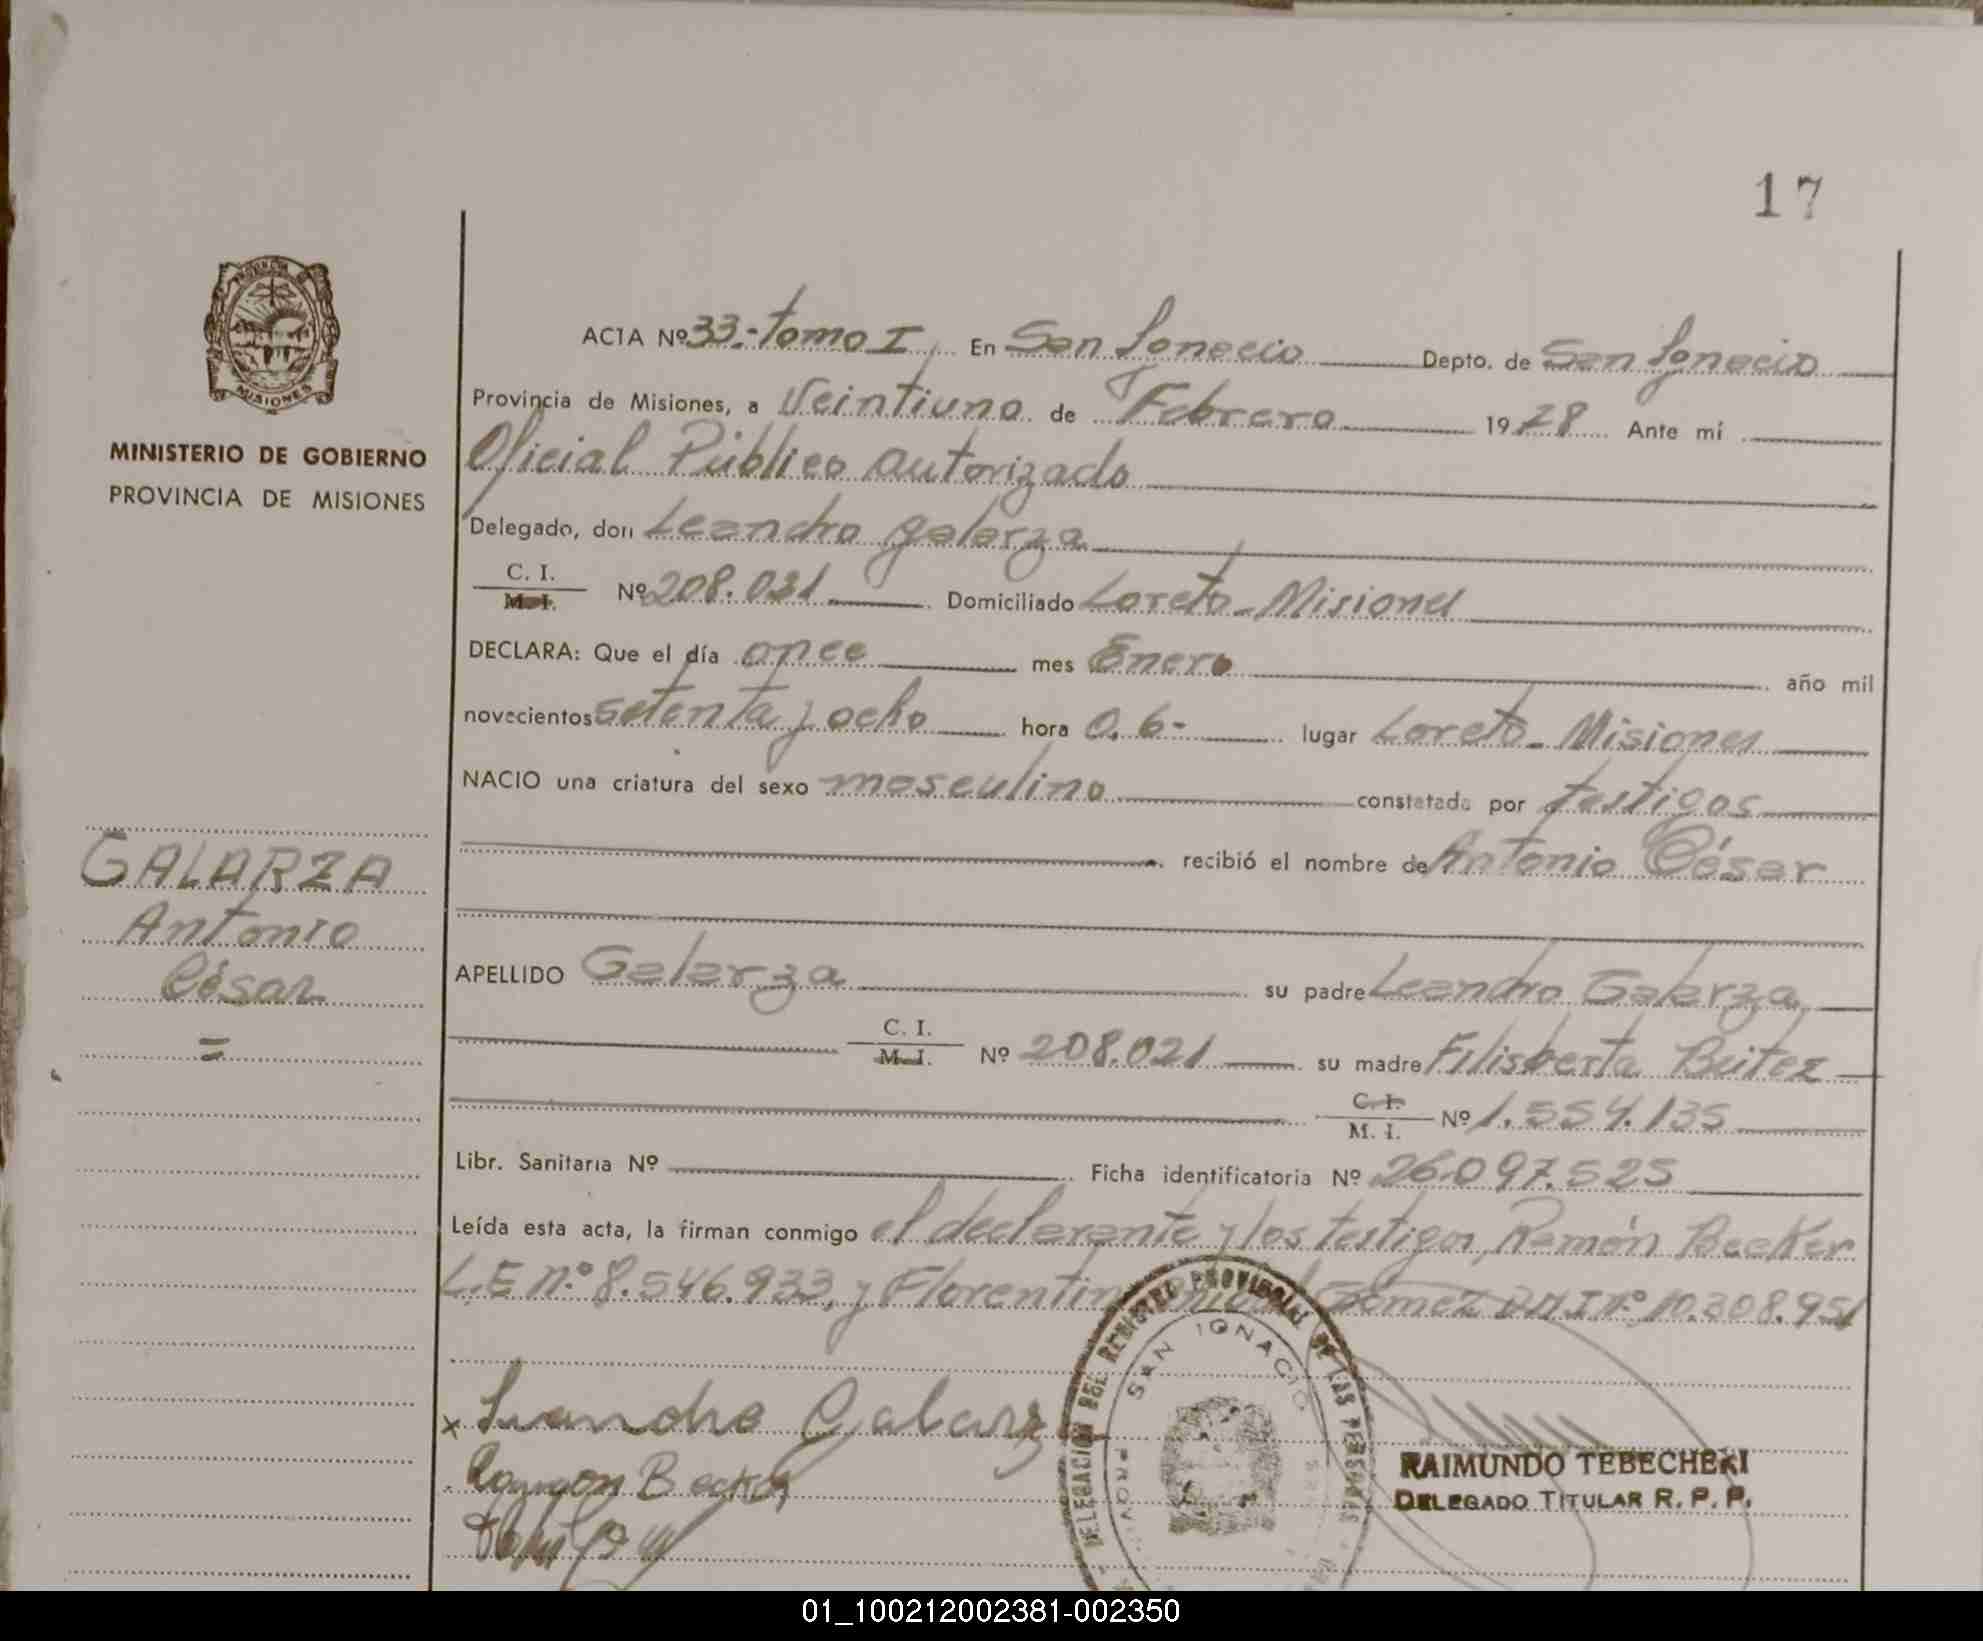 17
ACTA Nº 33.- tomo I, En San Ignacio Depto. de San Ignacio
Provincia de Misiones, a Veintiuno de Febrero 1978 Ante mí
Oficial Público autorizado
MINISTERIO DE GOBIERNO
PROVINCIA DE MISIONES
MISIONES
Delegado, don Leandro Galarza
C. I.
M. I. Nº 208.031 Domiciliado Loreto - Misiones
DECLARA: Que el día once mes Enero año mil
novecientos setenta y ocho hora 0.6- lugar Loreto - Misiones
NACIO una criatura del sexo masculino constatada por testigos
recibió el nombre de Antonio César
GALARZA
Antonio
César
=
APELLIDO Galarza su padre Leandro Galarza
C. I.
M. I. Nº 208.021 su madre Filisberta Beitez
C. I.
M. I. Nº 1.554.135
Libr. Sanitaria Nº Ficha identificatoria Nº 26.097.525
Leída esta acta, la firman conmigo el declarante y los testigos, Ramón Becker
L.E nº 8.546.933, y Florentin Gómez DNI nº 10.308.951
DELEGACION DEL REGISTRO PROVINCIAL DE LAS PERSONAS
SAN IGNACIO
x Leandro Galarza
Ramon Becker
RAIMUNDO TEBECHEKI
DELEGADO TITULAR R. P. P.
01_100212002381-002350